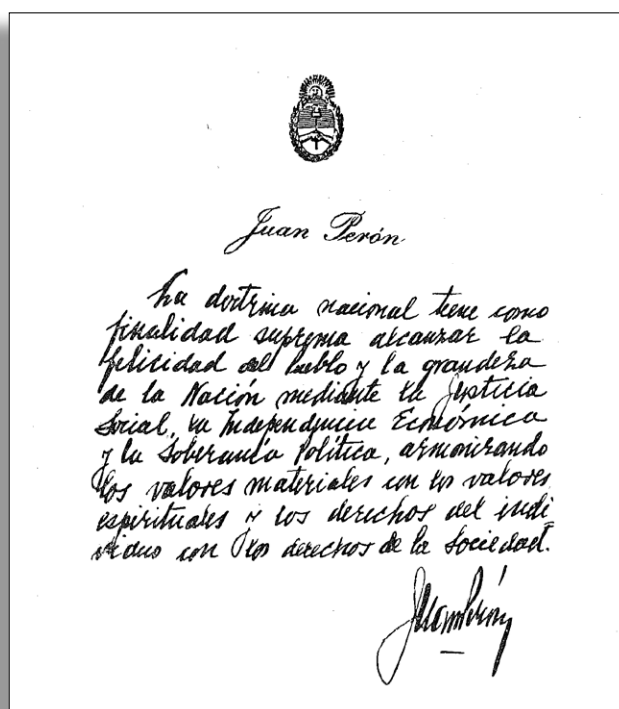 Juan Perón
La doctrina nacional tiene como
finalidad suprema alcanzar la
felicidad del Pueblo y la grandeza
de la Nación mediante la Justicia
Social, la Independencia Económica
y la Soberanía Política, armonizando
los valores materiales con los valores
espirituales y los derechos del indi
viduo con los derechos de la Sociedad.
Juan Perón